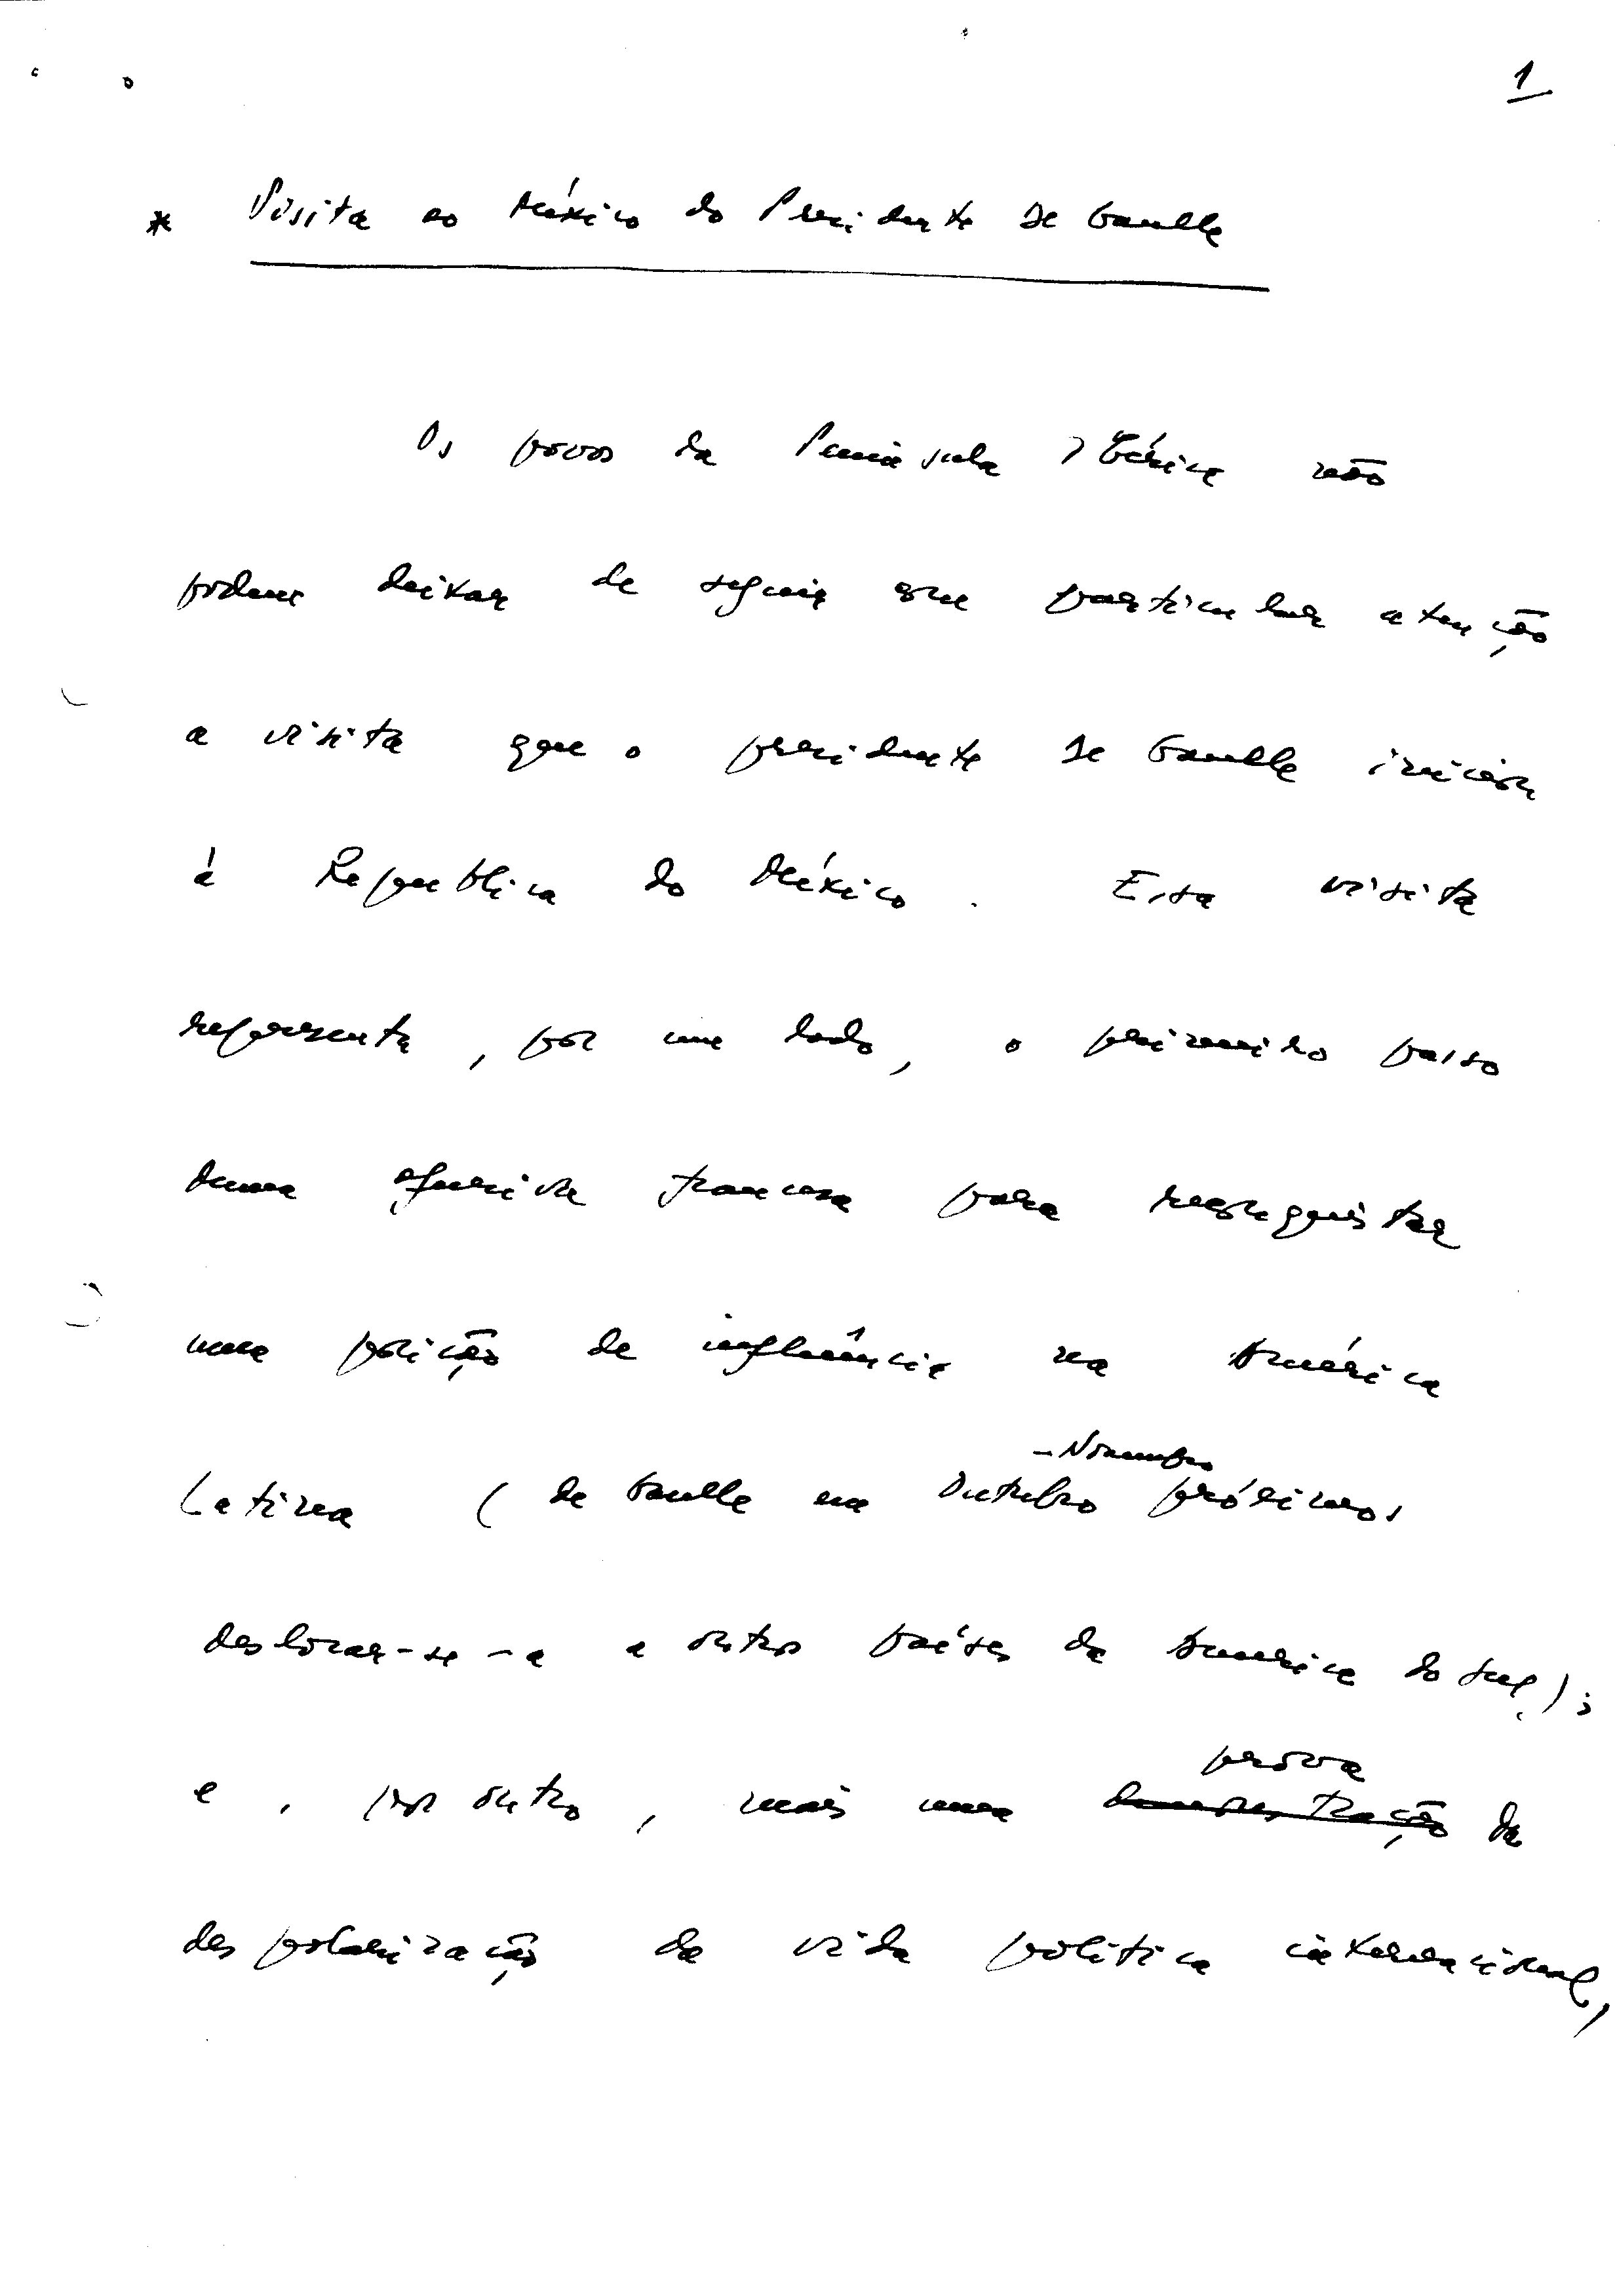 1
* Visita ao México do Presidente de Gaulle
Os povos da Península Ibérica não
podem deixar de seguir com particular atenção
a visita que o presidente de Gaulle iniciou
à Republica do México. Essa visita
representa, por um lado, o primeiro passo
duma ofensiva francesa para reconquistar
uma posição de influência na América
- Novembro
Latina ( de Gaulle em Outubro próximos
deslocar-se-a a outros países da America do Sul);
prova
e, por outro, mais uma demonstração da
despolarização da vida politica internacional,